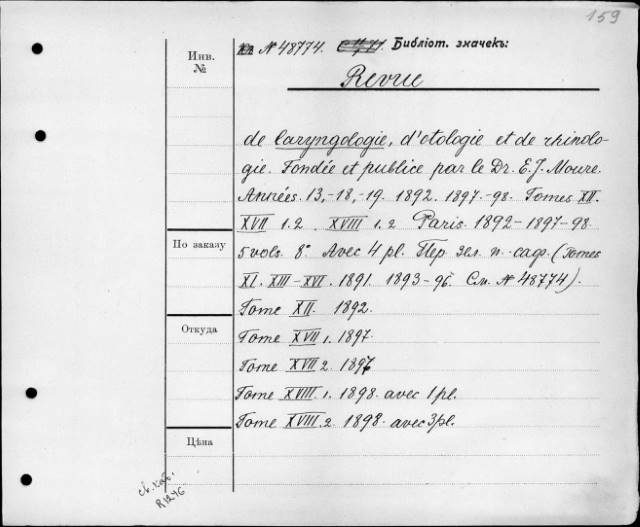 159
№ 48774. Библіот. значекъ:
Инв. №
Revue
de laryngologie, d'otologie et de rhinolo-
gie. Fondée et publiée par le Dr. E. J. Moure.
Années. 13,-18,-19. 1892. 1897.-98. Tomes XII.
XVII 1.2. XVIII 1.2 Paris. 1892-1897-98.
По заказу
5 vols. 8° Avec 4 pl. Пер. зел. п. саф. (Tomes
XI. XIII-XVI. 1891. 1893-96. См. № 48774).
Tome XII. 1892.
Откуда
Tome XVII 1. 1897.
Tome XVII 2. 1897
Tome XVIII. 1. 1898. avec 1 pl.
Tome XVIII. 2. 1898. avec 3 pl.
Цѣна
св. каб.
R1246